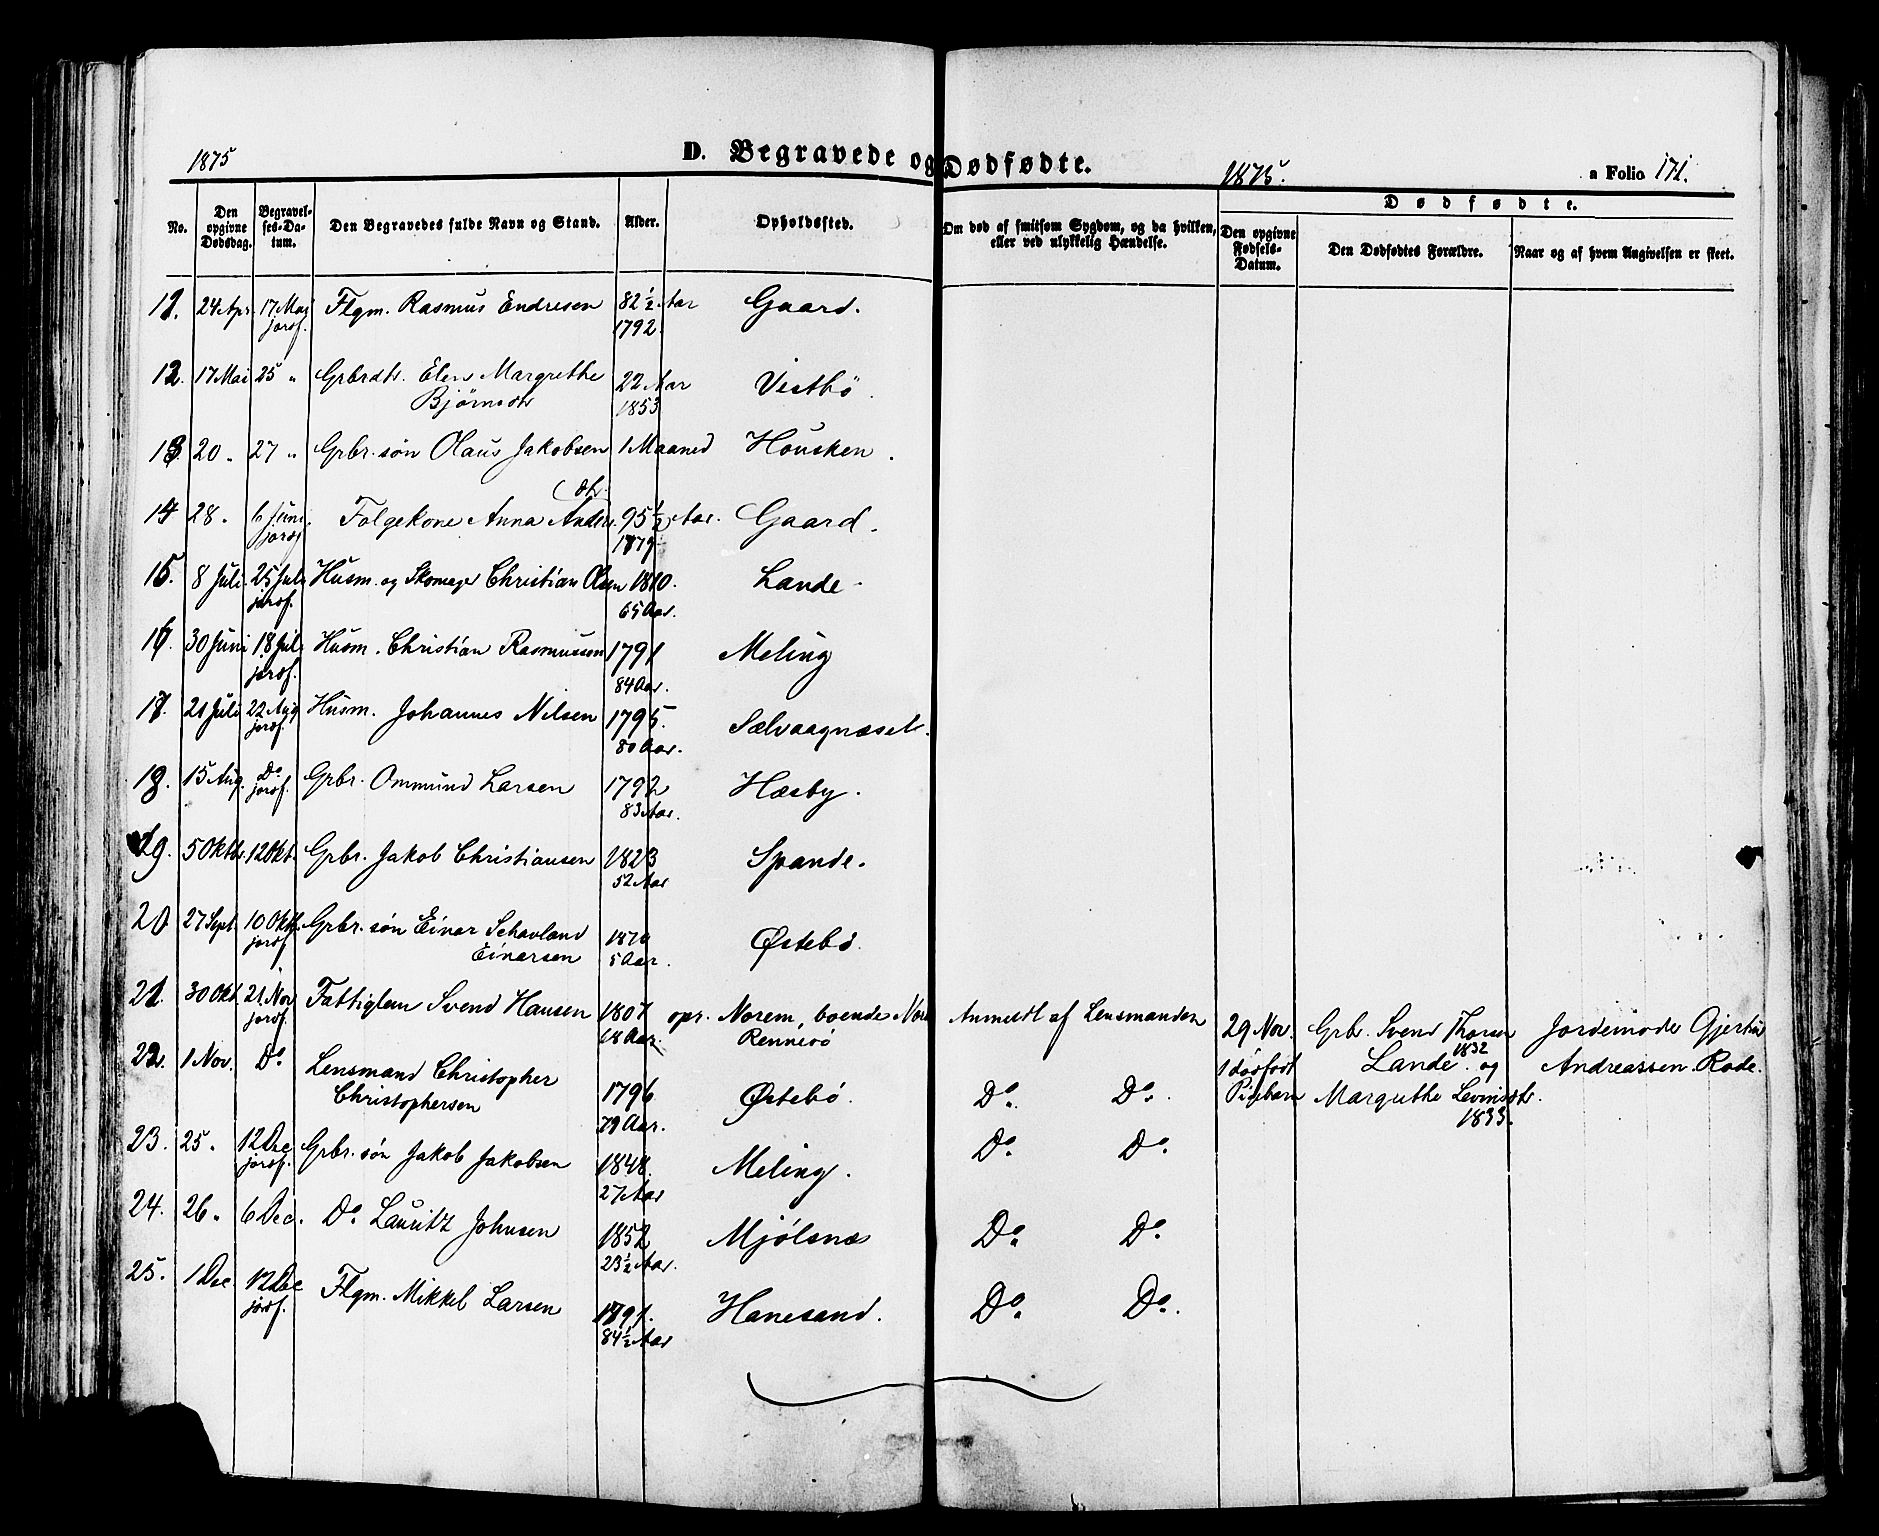 1875
D. Begravede og Dødfødte.
1875.
a Folio 171.
No.
Den opgivne Dødsdag.
Begravelses-Datum.
Den Begravedes fulde Navn og Stand.
Alder.
Opholdssted.
Om død af smitsom Sygdom, og da hvilken, eller ved ulykkelig Hændelse.
Dødfødte.
Den opgivne Fødsels-Datum.
Den Dødfødtes Forældre.
Naar og af hvem Angivelsen er skeet.
11. 24 Apr. 17 Mai Flgm. Rasmus Endresen 82 1/2 Aar Gaard.
jordf. 1792.
12. 17 Mai 25 " Grbrdtr. Elen Margrethe 22 Aar Vestbö.
Bjørnsdtr 1853
13. 20 " 27 " Grbr. søn Olaus Jakobsen 1 Maaned Housken.
14 28 " 6 Juni Folgekone Anna Anders dtr. 95 1/2 Aar. Gaard.
15. 8 Juli 25 Juli Husm. og Skomager Christian Olsen 1810. Lande.
jordf. 65 Aar.
16. 30 Juni 18 Juli Husm. Christian Rasmussen 1791 Meling
jordf. 84 Aar.
17. 21 Juli 22 Aug Husm. Johannes Nilsen 1795. Sælvaagnæset.
jordf. 80 Aar.
18. 15 Aug. Do Grbr. Ommund Larsen 1792 Hæsby.
jordf. 83 Aar.
19. 5 Oktbr. 12 Okt. Grbr. Jakob Christiansen 1823 Spande.
52 Aar
20. 27 Sept. 10 Oktb. Grbr. søn Einar Schavland 1870 Østebö.
jordf. Einarsen 5 Aar.
21. 30 Okt 21 Nov Fattiglem Svend Hansen 1807 opr. Norem, boende Anmeldt af Lensmanden
jordf. 68 Aar. Rennesö
29 Nov. Grbr. Svend Thorsen Jordemoder Gjertine
1 dødfødt Lande 1832 og Andreassen Rode.
Pigebarn Margrethe Levinsdtr.
1833.
22. 1 Nov. Do Lensmand Christopher 1796 Østebö. Do. Do.
Christophersen 79 Aar.
23. 25 " 12 Dec Grbr. søn Jakob Jakobsen 1848. Meling. Do. Do.
jordf. 27 Aar
24. 26 " 6 Dec. Do. Lauritz Johnsen 1852 Mjölsnæs Do. Do.
23 1/2 Aar.
25. 1 Dec 12 Dec Flgm. Mikkel Larsen 1791. Hanesand. Do. Do.
jordf. 84 1/2 Aar